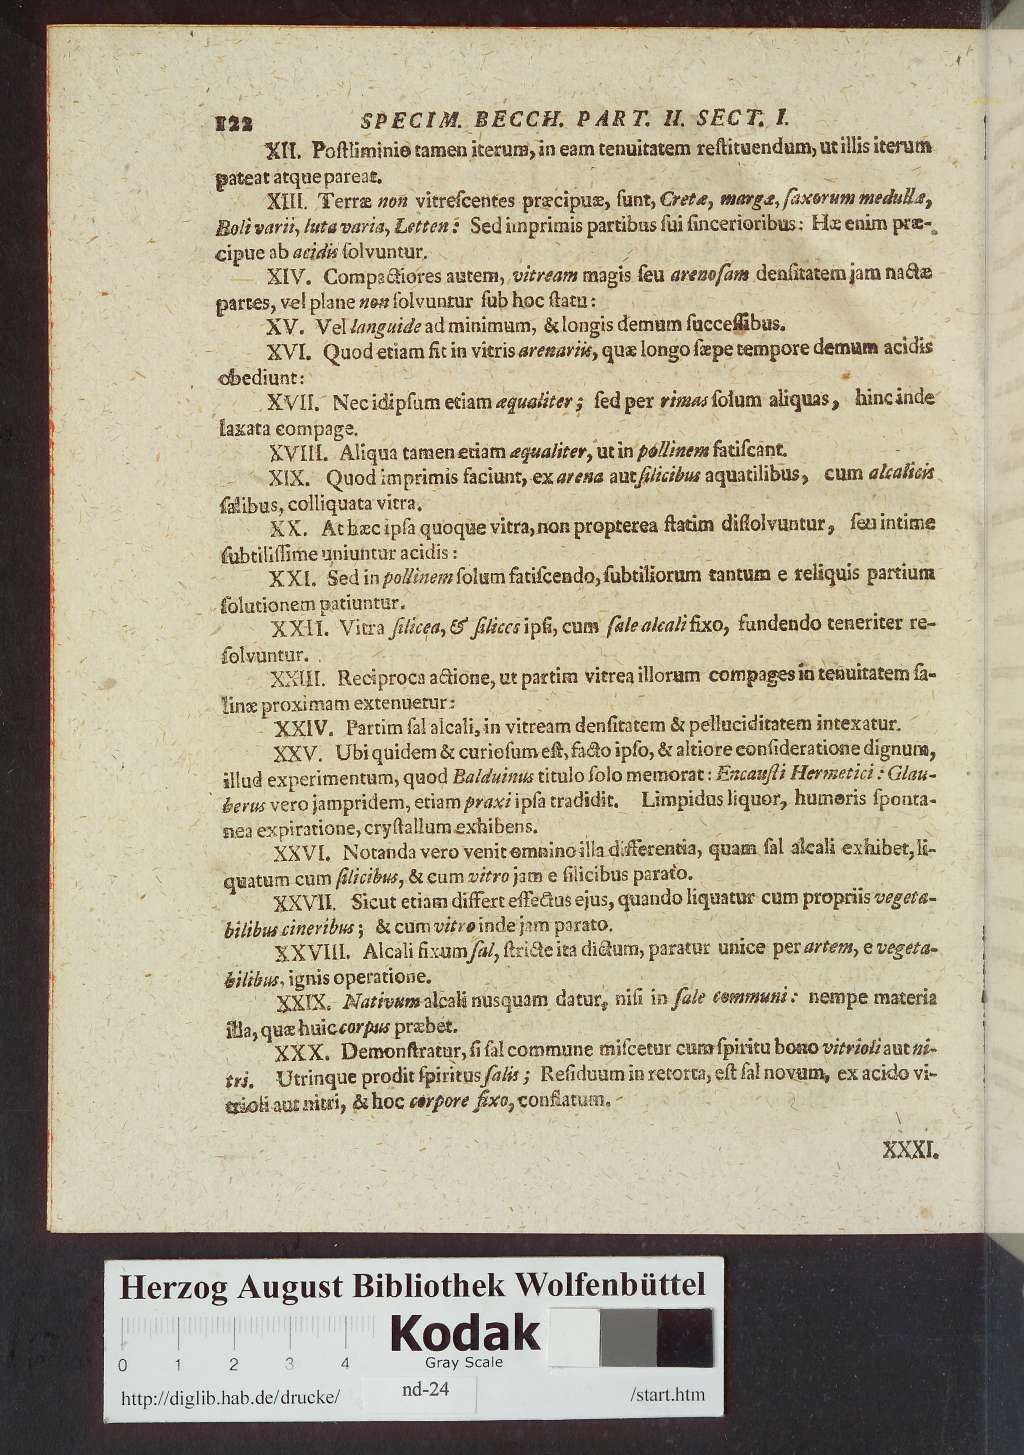 122 SPECIM. BECCH. PART. II. SECT. I.
XII. Poſtliminio tamen iterum, in eam tenuitatem reſtituendum, ut illis iterum
pateat atque pareat.
XIII. Terræ non vitreſcentes præcipuæ, ſunt, Cretæ, margæ, ſaxorum medullæ,
Boli varii, luta varia, Letten: Sed imprimis partibus ſui ſincerioribus: Hæ enim præ-
cipue ab acidis ſolvuntur.
XIV. Compactiores autem, vitream magis ſeu arenoſam denſitatem jam nactæ
partes, vel plane non ſolvuntur ſub hoc ſtatu:
XV. Vel languide ad minimum, & longis demum ſucceſſibus.
XVI. Quod etiam fit in vitris arenariis, quæ longo ſæpe tempore demum acidis
obediunt:
XVII. Nec idipſum etiam æqualiter; ſed per rimas ſolum aliquas, hinc inde
laxata compage.
XVIII. Aliqua tamen etiam æqualiter, ut in pollinem fatiſcant.
XIX. Quod imprimis faciunt, ex arena aut ſilicibus aquatilibus, cum alcalicis
ſalibus, colliquata vitra.
XX. At hæc ipſa quoque vitra, non propterea ſtatim diſſolvuntur, ſeu intime
ſubtiliſſime uniuntur acidis:
XXI. Sed in pollinem ſolum fatiſcendo, ſubtiliorum tantum e reliquis partium
ſolutionem patiuntur.
XXII. Vitra ſilicea, & ſilices ipſi, cum ſale alcali fixo, fundendo teneriter re-
ſolvuntur.
XXIII. Reciproca actione, ut partim vitrea illorum compages in tenuitatem ſa-
linæ proximam extenuetur:
XXIV. Partim ſal alcali, in vitream denſitatem & pelluciditatem intexatur.
XXV. Ubi quidem & curioſum eſt, facto ipſo, & altiore conſideratione dignum,
illud experimentum, quod Balduinus titulo ſolo memorat: Encauſti Hermetici: Glau-
berus vero jampridem, etiam praxi ipſa tradidit. Limpidus liquor, humoris ſponta-
nea expiratione, cryſtallum exhibens.
XXVI. Notanda vero venit omnino illa differentia, quam ſal alcali exhibet, li-
quatum cum ſilicibus, & cum vitro jam e ſilicibus parato.
XXVII. Sicut etiam differt effectus ejus, quando liquatur cum propriis vegeta-
bilibus cineribus; & cum vitro inde jam parato.
XXVIII. Alcali fixum ſal, ſtricte ita dictum, paratur unice per artem, e vegeta-
bilibus, ignis operatione.
XXIX. Nativum alcali nusquam datur, niſi in ſale communi: nempe materia
illa, quæ huic corpus præbet.
XXX. Demonſtratur, ſi ſal commune miſcetur cum ſpiritu bono vitrioli aut ni-
tri. Utrinque prodit ſpiritus ſalis; Reſiduum in retorta, eſt ſal novum, ex acido vi-
trioli aut nitri, & hoc corpore fixo, conflatum.
XXXI.
Herzog August Bibliothek Wolfenbüttel
Kodak
Gray Scale
0 1 2 3 4
http://diglib.hab.de/drucke/ nd-24 /start.htm